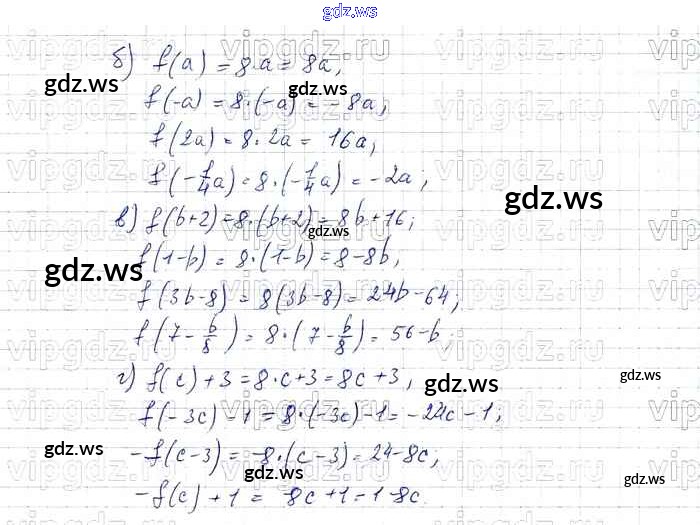 gdz.ws
vipgdz.ru vipgdz.ru vipgdz.ru
б) f(a) = 8·a = 8a,
gdz.ws gdz.ws
f(-a) = 8·(-a) = -8a,
f(2a) = 8·2a = 16a,
f(-1/4a) = 8·(-1/4a) = -2a;
gdz.ws
в) f(b+2) = 8·(b+2) = 8b+16;
gdz.ws
f(1-b) = 8·(1-b) = 8-8b,
gdz.ws
f(3b-8) = 8(3b-8) = 24b-64;
f(7-b/8) = 8·(7-b/8) = 56-b;
г) f(c)+3 = 8·c+3 = 8c+3,
gdz.ws
f(-3c)-1 = 8·(-3c)-1 = -24c-1;
gdz.ws
-f(c-3) = -8·(c-3) = 24-8c;
gdz.ws gdz.ws
-f(c)+1 = -8c+1 = 1-8c.